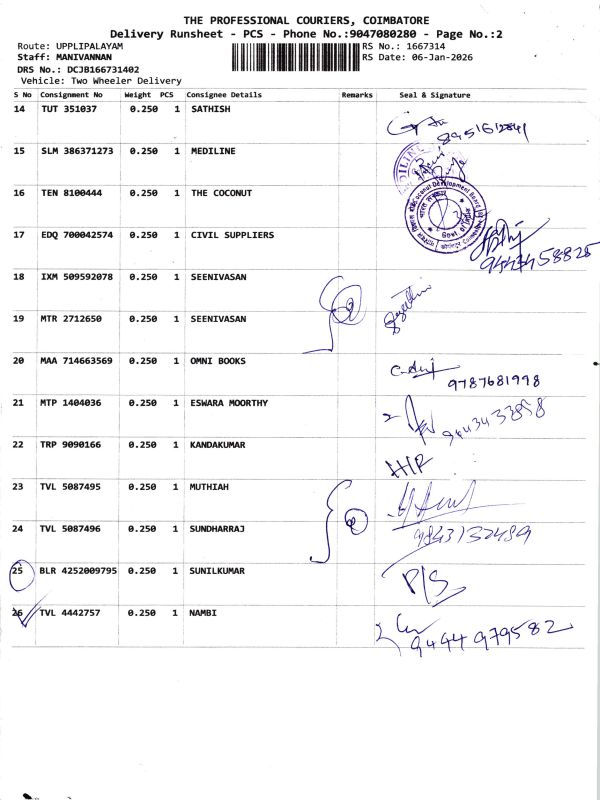 THE PROFESSIONAL COURIERS, COIMBATORE
Delivery Runsheet - PCS - Phone No.:9047080280 - Page No.:2
Route: UPPLIPALAYAM RS No.: 1667314
Staff: MANIVANNAN RS Date: 06-Jan-2026
DRS No.: DCJB166731402
Vehicle: Two Wheeler Delivery
S No Consignment No Weight PCS Consignee Details Remarks Seal & Signature
14 TUT 351037 0.250 1 SATHISH
15 SLM 386371273 0.250 1 MEDILINE
16 TEN 8100444 0.250 1 THE COCONUT
Coconut Development Board
Govt. of India
17 EDQ 700042574 0.250 1 CIVIL SUPPLIERS
18 IXM 509592078 0.250 1 SEENIVASAN
19 MTR 2712650 0.250 1 SEENIVASAN
20 MAA 714663569 0.250 1 OMNI BOOKS
9787681998
21 MTP 1404036 0.250 1 ESWARA MOORTHY
22 TRP 9090166 0.250 1 KANDAKUMAR
H/R
23 TVL 5087495 0.250 1 MUTHIAH
24 TVL 5087496 0.250 1 SUNDHARRAJ
9843132489
25 BLR 4252009795 0.250 1 SUNILKUMAR
P/S
26 TVL 4442757 0.250 1 NAMBI
9444979582